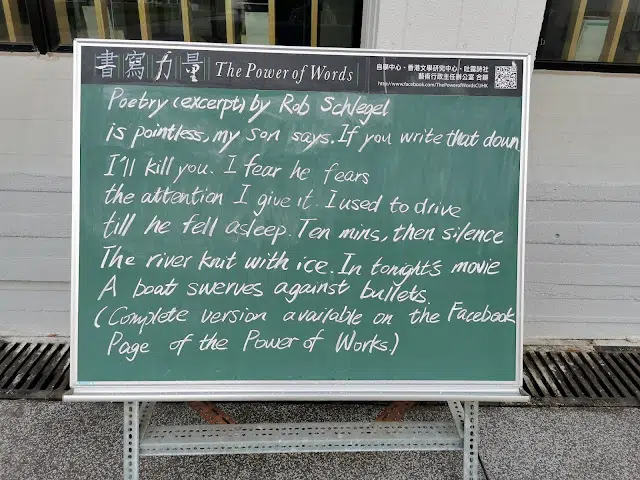 書寫力量 The Power of Words
自學中心、香港文學研究中心、吐露詩社
藝術行政主任辦公室 合辦
http://www.facebook.com/ThePowerofWordsCUHK
Poetry (excerpt) by Rob Schlegel
is pointless, my son says. If you write that down
I'll kill you. I fear he fears
the attention I give it. I used to drive
till he fell asleep. Ten mins, then silence
The river knit with ice. In tonight's movie
A boat swerves against bullets.
(Complete version available on the Facebook
Page of the Power of Works.)